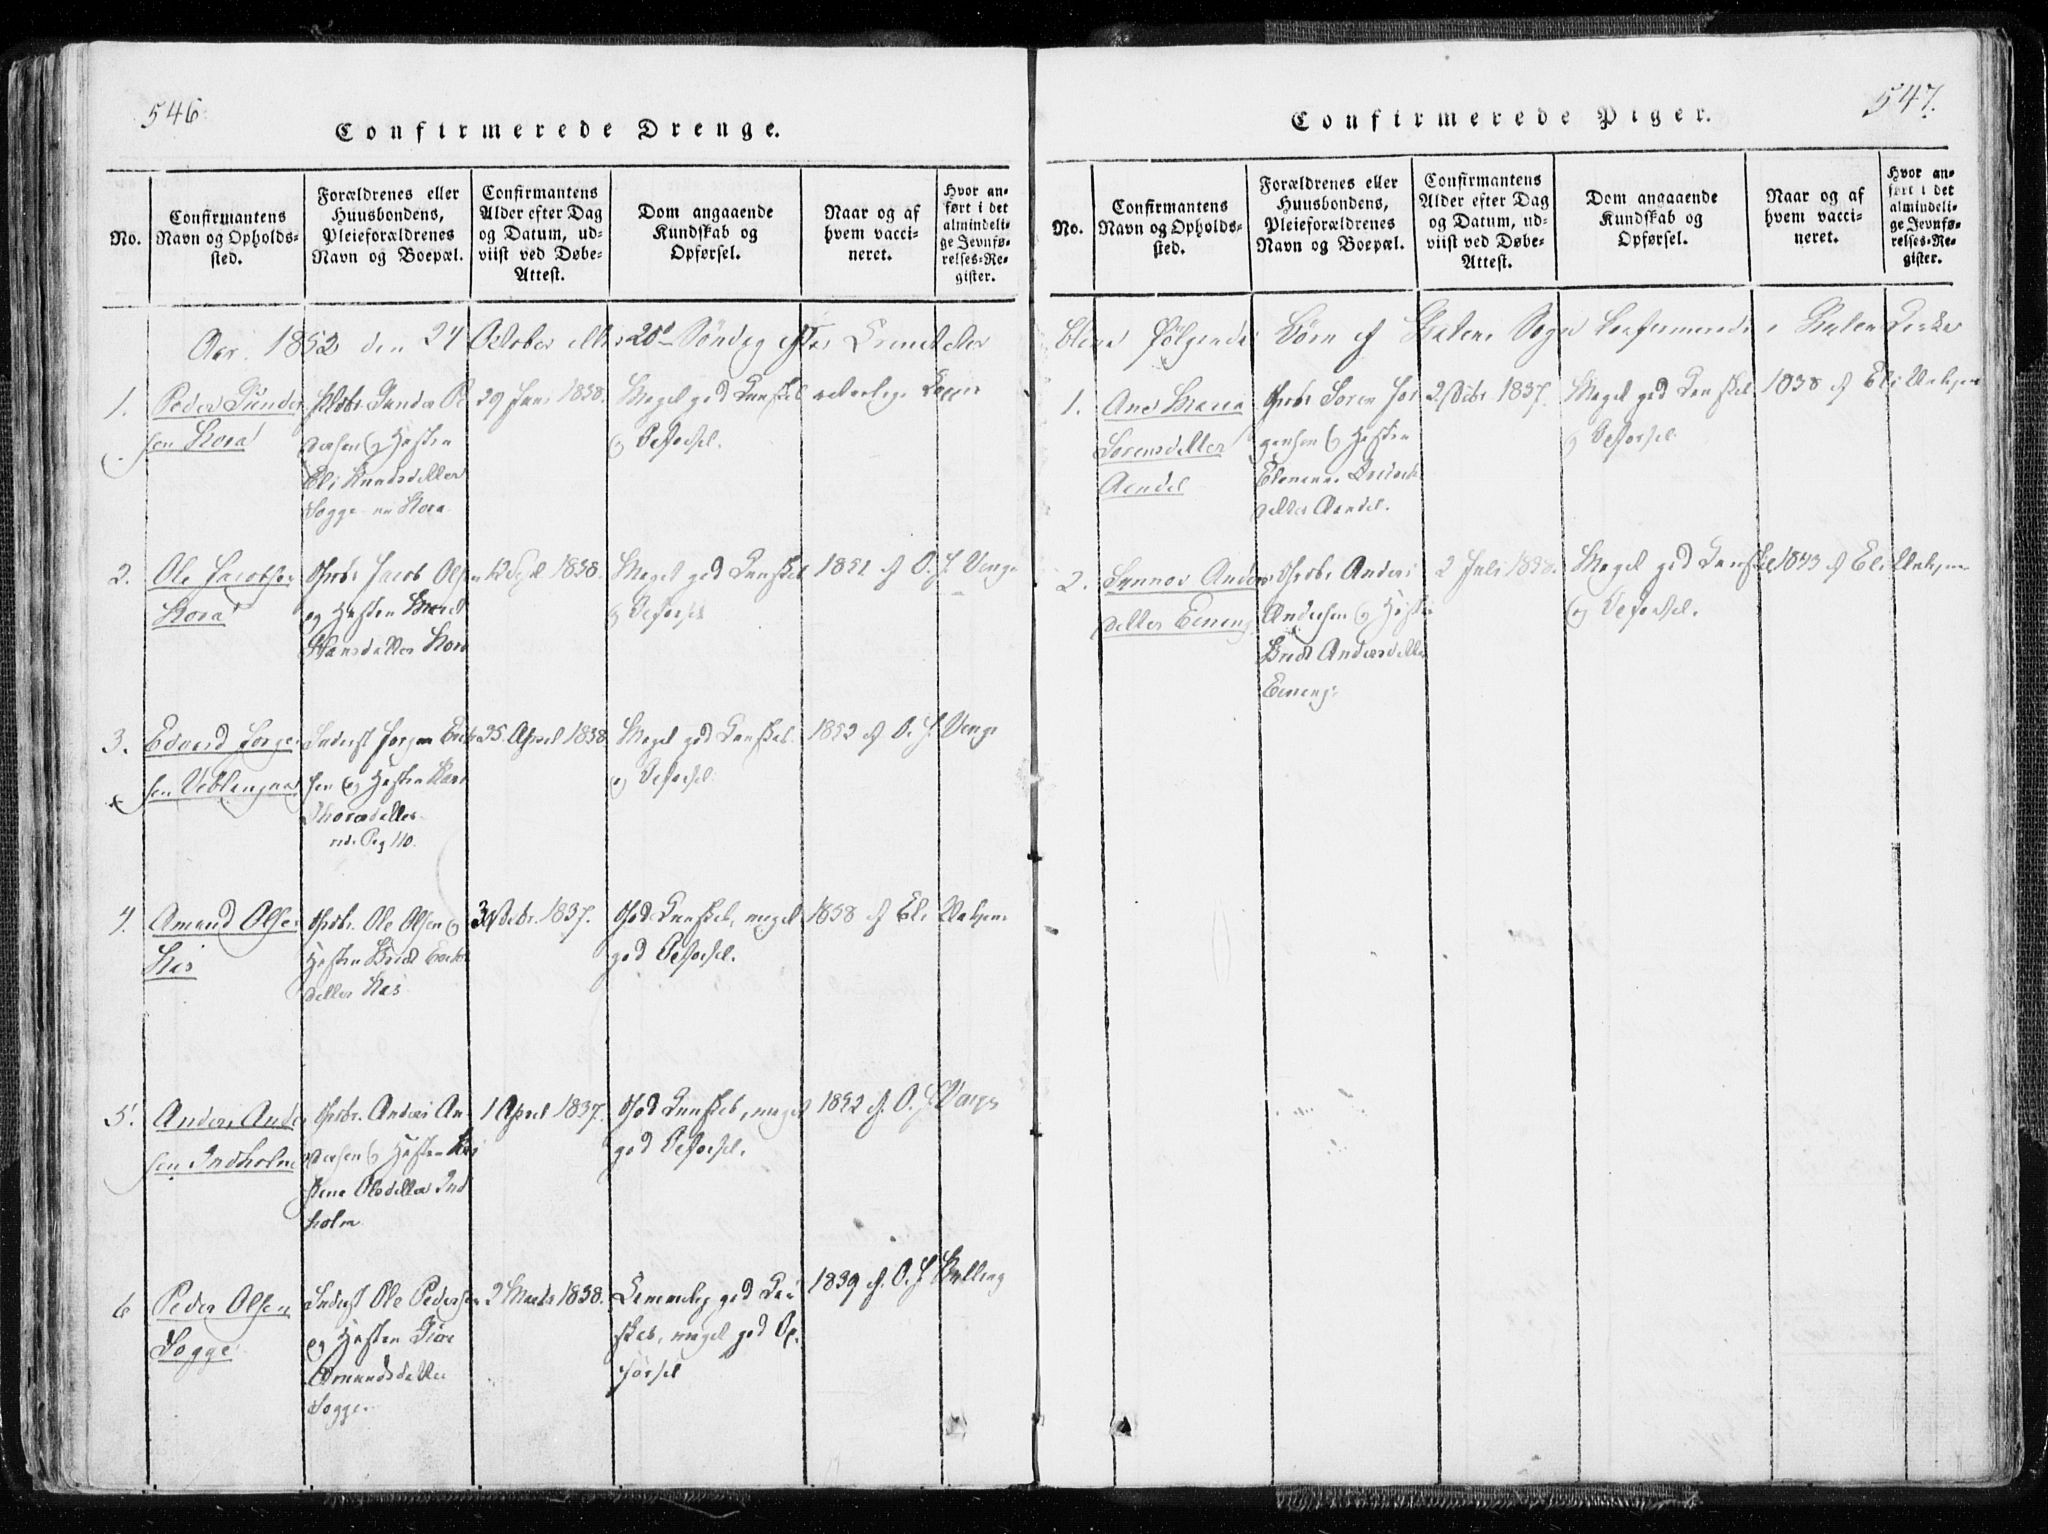 546
Confirmerede Drenge.
No.
Confirmantens
Navn og Opholds-
sted.
Forældrenes eller
Huusbondens,
Pleieforældrenes
Navn og Boepæl.
Confirmantens
Alder efter Dag
og Datum, ud-
viist ved Døbe-
Attest.
Dom angaaende
Kundskab og
Opførsel.
Naar og af
hvem vacci-
neret.
Hvor an-
ført i det
almindeli-
ge Jevnfø-
relses-Re-
gister.
Aar 1852 den 24 October eller 20d Søndag efter
1.
Peder Gunder
sen Kora
Gunder Pe
dersen og Hustru
Eli Knudsdatter
Sogge nu Kora
29 Juni 1838.
Meget god Kundskab
og Opførsel.
2.
Ole Jacobsen
Kora
Grdbr. Jacob Olsen
og Hustru Marit
Hansdatter Kora
12 Sept 1838.
Meget god Kundskab
og Opførsel
1852 af O. J. Venge
3.
Edvard Jørgen
sen Veblungnæs
Inderst Jørgen Erik
sen og Hustru Kari
Thoresdatter
vide Pag 110.
25 April 1838
Meget god Kundskab
og Opførsel
1852 af O. J. Venge
4.
Amund Olsen
Hus
Grdbr. Ole Olsen og
Hustru Brit
datter Hus
3 Octbr. 1837.
God Kundskab, meget
god Opførsel.
1838 af Eli
5.
Anders Ander
sen Indholm
Grdbr. Anders An
dersen og Hustru Kri
stine Olsdatter Ind
holm
1 April 1837.
God Kundskab, meget
god Opførsel.
1852 af O. J. Venge
6
Peder Olsen
Sogge
Inderst Ole Pedersen
og Hustru
Amundsdatter
Sogge.
2 Marts 1838.
Temmelig god Kund
skab, meget god Op
førsel
1839 af O. J.
547.
Confirmerede Piger.
No.
Confirmantens
Navn og Opholds-
sted.
Forældrenes eller
Huusbondens,
Pleieforældrenes
Navn og Boepæl.
Confirmantens
Alder efter Dag
og Datum, ud-
viist ved Døbe-
Attest.
Dom angaaende
Kundskab og
Opførsel.
Naar og af
hvem vacci-
neret.
Hvor an-
ført i det
almindeli-
ge Jevnfø-
relses-Re-
gister.
bleve følgende Børn af Sogn confirmerede i Kirke
1.
Ane Maria
Sørensdatter
Aandal
Grdbr Søren Jør
gensen og Hustru
datter Aandal.
2 Octbr 1837.
Meget god Kundskab
og Opførsel
1838 af Eli
2.
Synnøv Anders
datter
Grdbr Anders
Andersen og Hustru
Brit Andersdatter
2 Juli 1838.
Meget god Kundskab
og Opførsel.
1843 af Eli